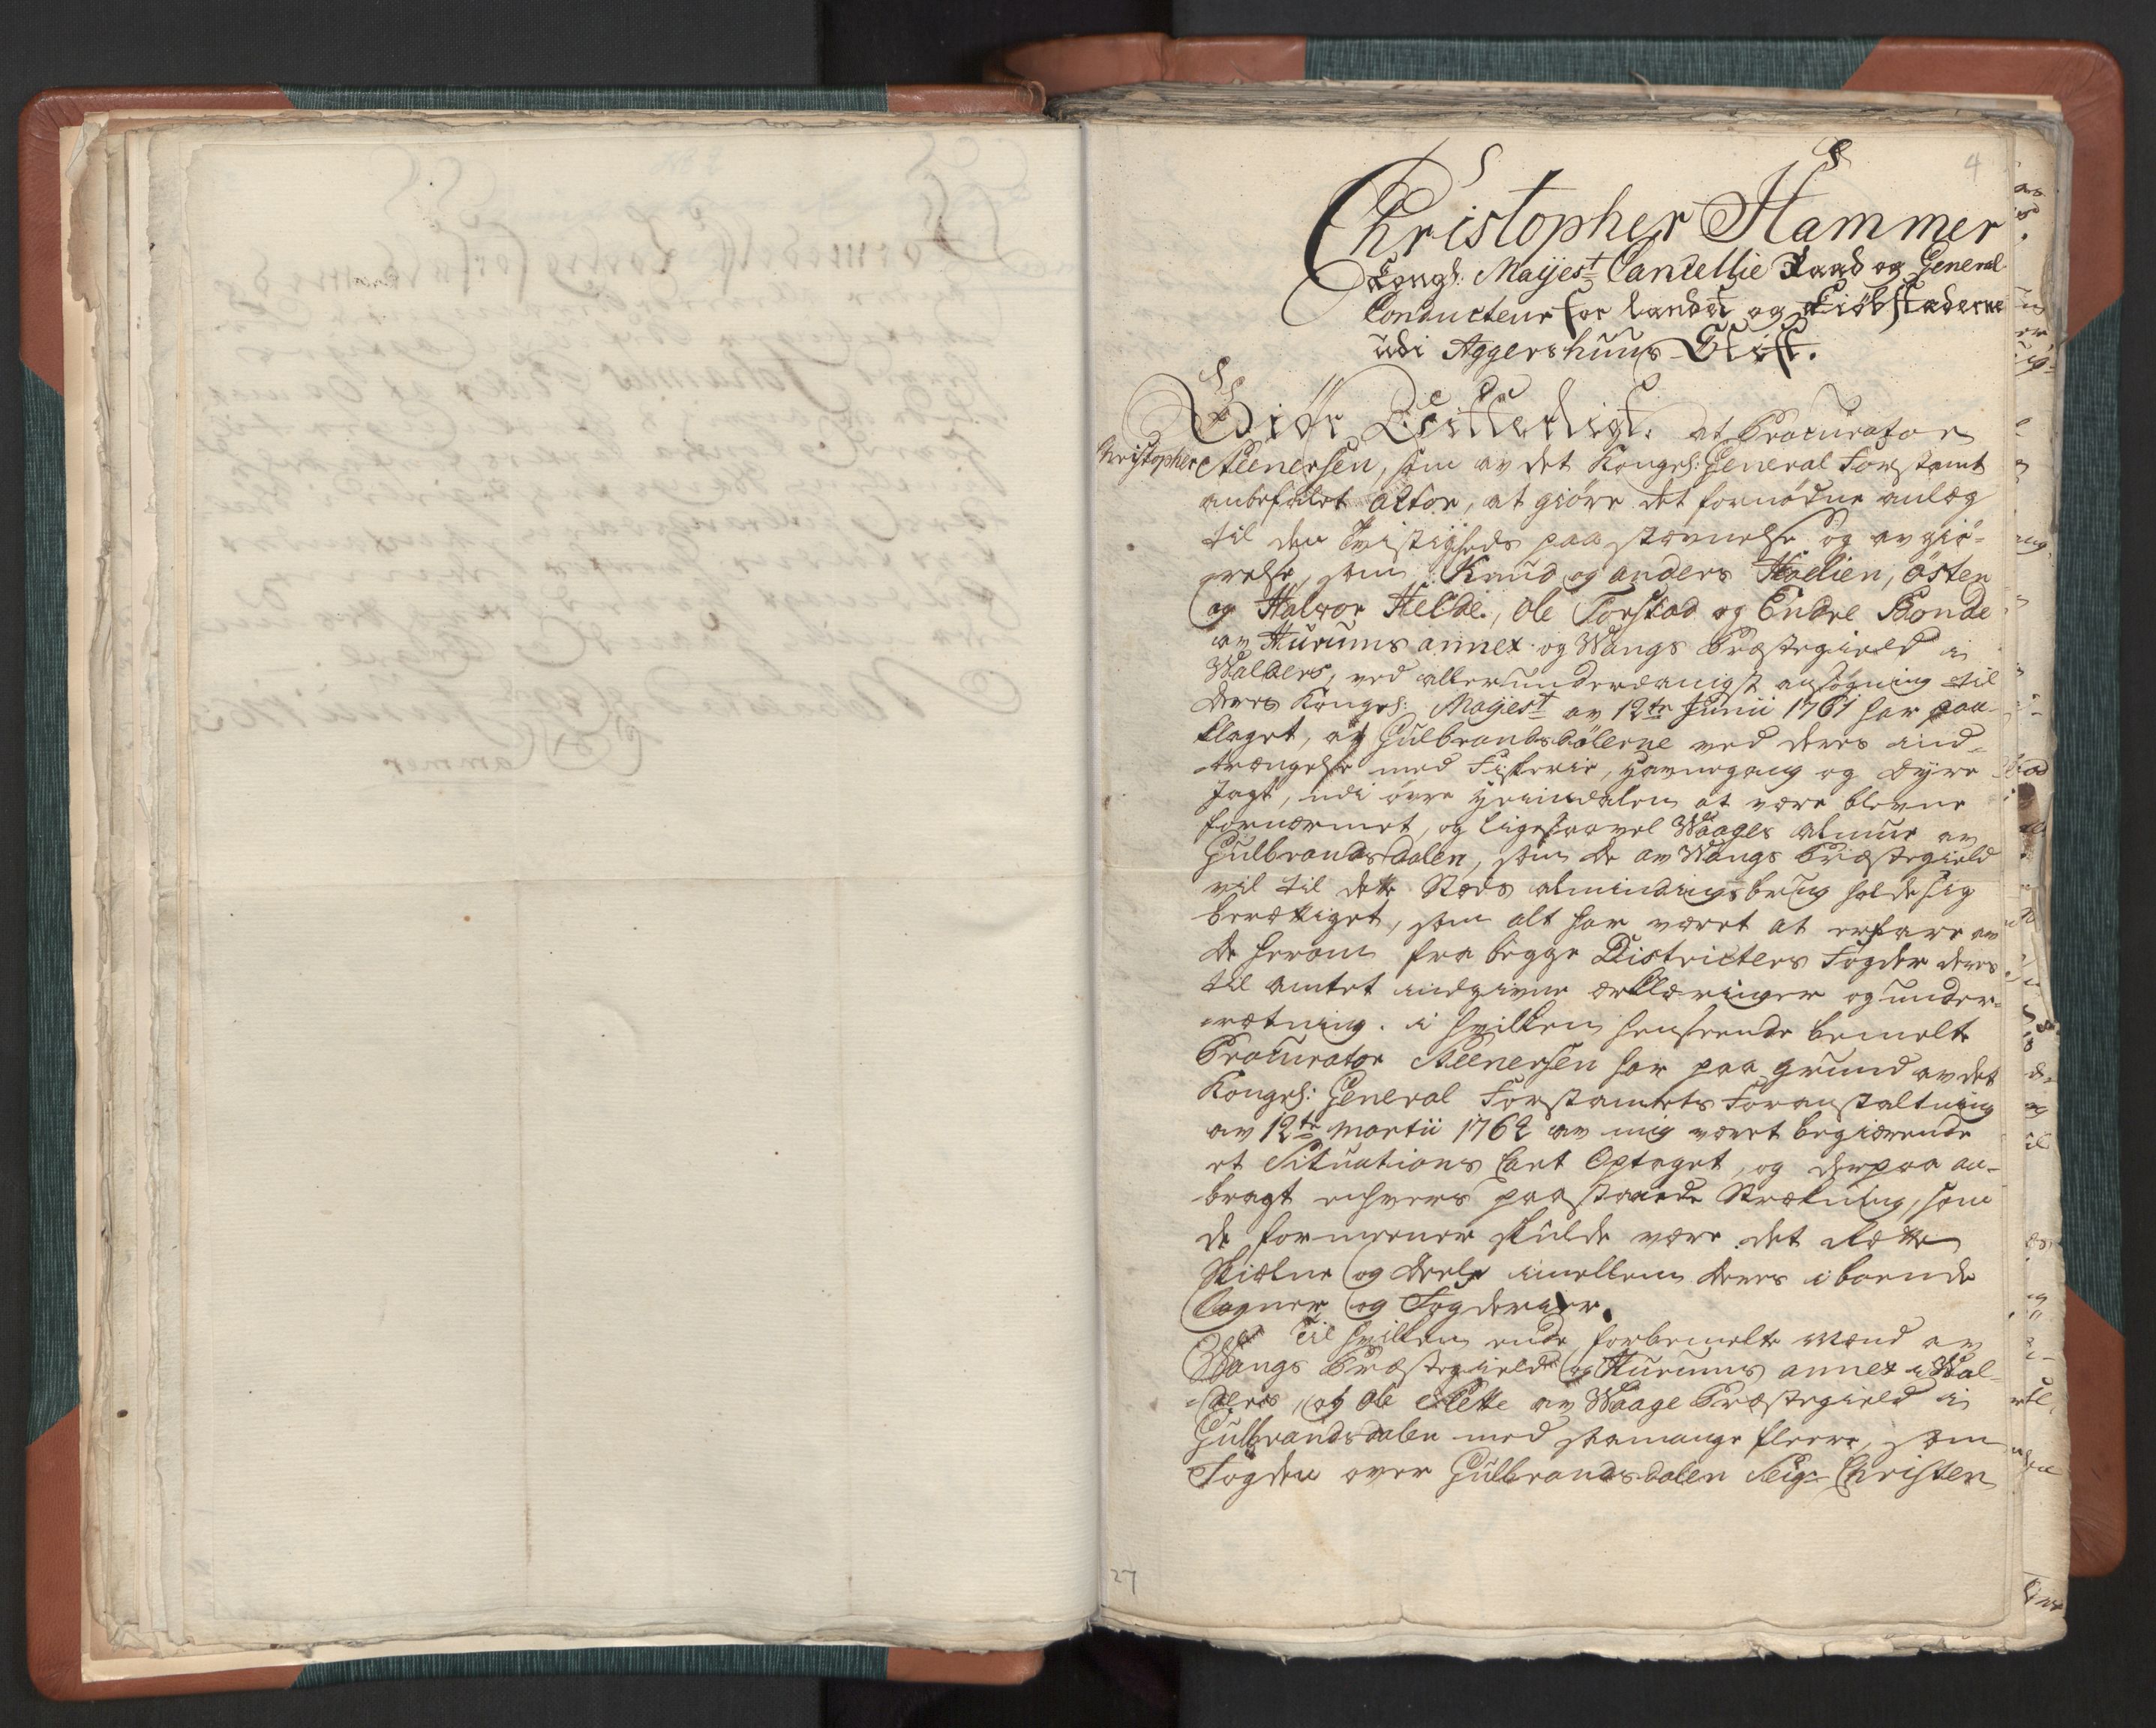 4
Christopher Hammer
Kongl: Mayest Cancellie Raad og General
Conducteur for Landet og Kiøbstæderne
udi Aggershuus Stift.
Giør Vitterligt: at Procurator
Christopher Steenersen, som av det Kongel: General Forstamt
anbefalet actor, at giøre det fornødne anlæg
til den Tvistigheds paa stævnelse og avgiø-
relse, som Knud og anders Hælien, östen
og Halvor Helde, Ole Torstad og Endre Bonde
av Hurums annex og Wangs Præstegield i
Walders, ved allerunderdanigst ansøgning til
Deres Kongel: Mayest av 12te Junii 1761 har paa-
klaget, at Gulbrandsdølerne ved deres ind-
trængelse med Fiskerie, Havnegang og Dyre
Jagt, udi øvre Heimdalen at være blevne
fornærmet, og ligesaavel Waages Almue av
Gulbrandsdalen, som de av Wangs Præstegield
vil til dette Stæds almindings brug holde sig
berættiget, som alt har været at erfare av
de herom fra begge Districters Fogder deres
til amtet indgivne erklæringer og under-
rætning. i hvilken henseende bemelte
Procurator Steenersen har paa grund av det
Kongel: General Forstamtets Foranstaltning
av 12te Martii 1762 av mig været begiærende
et Situations Cart Optaget, og derpaa an-
bragt enhvers paastaaede Strækning, som
de formeener skulde være det rætte
Skiælne og deele imellem deres iboende
Eagner og Fogderier.
Til hvilken ende forbemelte Mænd av
Wangs Præstegield og Hurums annex i Wal-
ders, og Ole Slette av Waage Præstegield i
Gulbrandsdalen med saamange fleere, som
Fogden over Gulbrandsdalen Seigr Christen
27